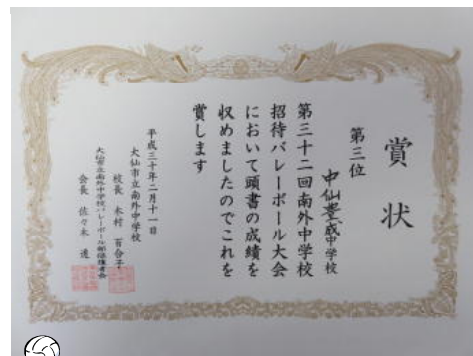 賞状
第三位
中仙豊成中学校
第三十二回南外中学校
招待バレーボール大会
において頭書の成績を
収めましたのでこれを
賞します
平成三十年二月十一日
大仙市立南外中学校
校長 木村 百合子
大仙市立南外中学校バレーボール部保護者会
会長 佐々木 透